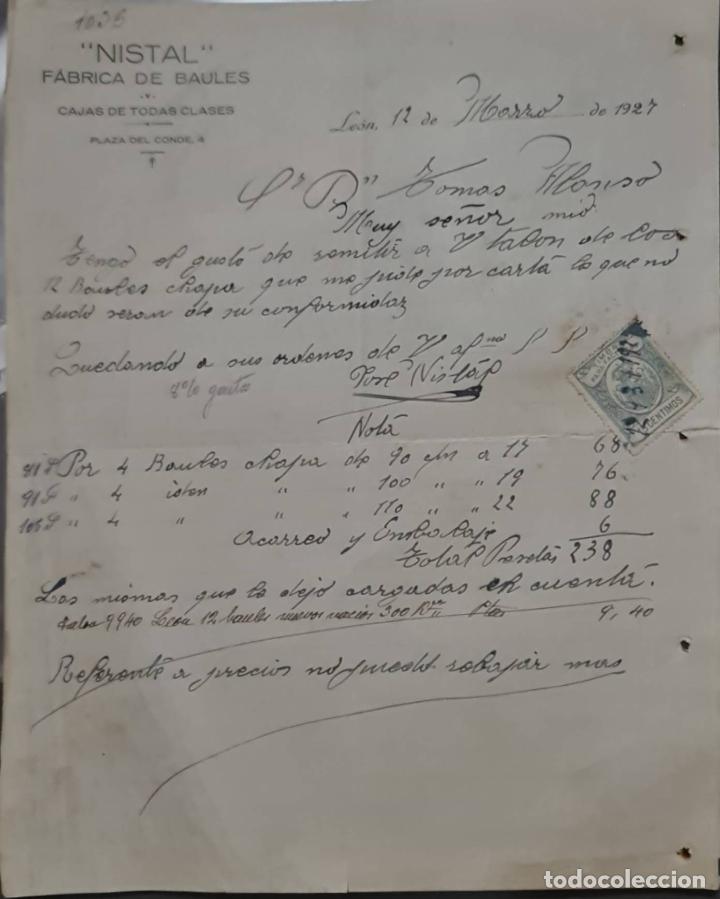 1035
"NISTAL"
FÁBRICA DE BAULES
CAJAS DE TODAS CLASES
PLAZA DEL CONDE, 4
León, 12 de Marzo de 1927
Sr Dn Tomas Alonso
Muy señor mio
Tengo el gusto de remitir a V talon de los
12 Baules chapa que me pide por carta lo que no
dudo seran de su conformidaz
Quedando a sus ordenes de V
José Nistal
8% gastos
Nota
Por 4 Baules chapa de 90 c/m a 17 68
91 P " 4 iden " " 100 " " 19 76
" 4 " " " 110 " " 22 88
Acarreo y Embalaje 6
Total Pesetas 238
Las mismas que le dejo cargadas en cuenta.
9940 León 12 baules nuevos vacios 300 Ptas 9,40
Referente a precios no puedo rebajar mas
CENTIMOS
todocoleccion
todocoleccion.net